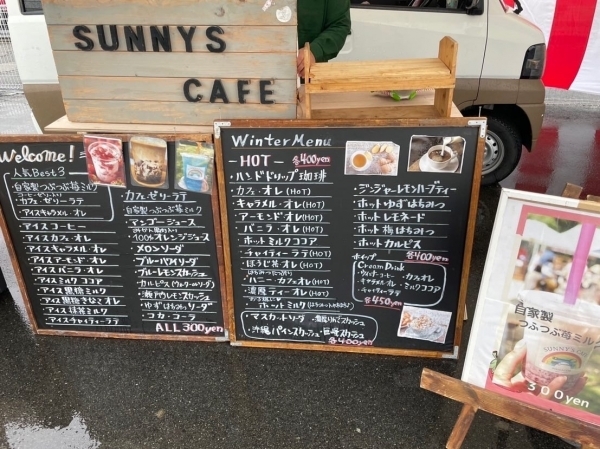 SUNNYS
CAFE
Welcome!
人気Best3
・自家製つぶつぶ苺ミルク
・カフェ・ゼリーラテ
・アイスキャラメル・オレ
・アイスコーヒー
・アイスカフェ・オレ
・アイスキャラメル・オレ
・アイスアーモンド・オレ
・アイスバニラ・オレ
・アイスココア
・アイス黒糖ミルク
・アイス黒糖きなこオレ
・アイス抹茶ミルク
・アイスチャイティーラテ
・カフェ・ゼリーラテ
・自家製つぶつぶ苺ミルク
・マンゴージュース
・100%オレンジジュース
・メロンソーダ
・ブルーハワイソーダ
・ブルーレモンスカッシュ
・カルピス(ウォーターorソーダ)
・瀬戸内レモンスカッシュ
・ゆずはちみつorソーダ
・コカ・コーラ
ALL 300yen
Winter Menu
-HOT- 各400yen
・ハンドドリップ珈琲
・カフェ・オレ(HOT)
・キャラメル・オレ(HOT)
・アーモンド・オレ(HOT)
・バニラ・オレ(HOT)
・ホットミルクココア
・チャイティーラテ(HOT)
・ほうじ茶オレ(HOT)
・ハニー・カフェオレ(HOT)
・ホットミルク
・濃厚ティーオレ(HOT)
・ジンジャーレモンハーブティー
・ホットゆずはちみつ
・ホットレモネード
・ホット梅はちみつ
・ホットカルピス
各400yen
ホイップ
Cream Drink
・ウィンナーコーヒー・カフェオレ
・キャラメル・オレ・ミルクココア
・チャイティーラテ
各450yen
・マスカットソーダ
・沖縄パインスカッシュ
各400yen
自家製
つぶつぶ苺ミルク
SUNNYS
300yen